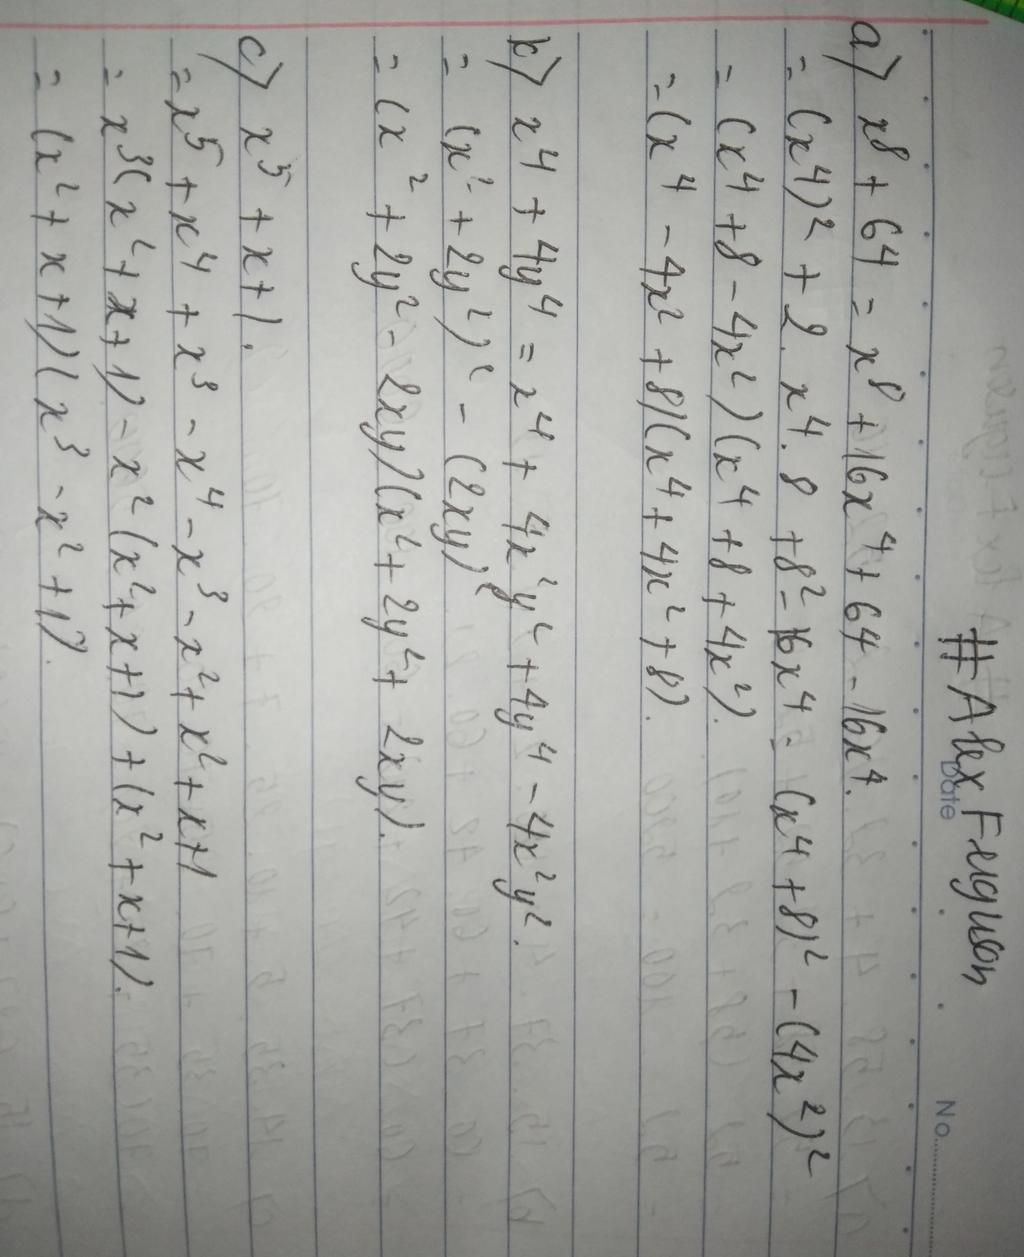 #Alex Ferguson
Date
No.
a) x⁸ + 64 = x⁸ + 16x⁴ + 64 - 16x⁴.
= (x⁴)² + 2. x⁴. 8 + 8² - 16x⁴ = (x⁴ + 8)² - (4x²)²
= (x⁴ + 8 - 4x²)(x⁴ + 8 + 4x²).
= (x⁴ - 4x² + 8)(x⁴ + 4x² + 8).
b) x⁴ + 4y⁴ = x⁴ + 4x²y² + 4y⁴ - 4x²y².
= (x² + 2y²)² - (2xy)²
= (x² + 2y² - 2xy)(x² + 2y² + 2xy).
c) x⁵ + x + 1.
= x⁵ + x⁴ + x³ - x⁴ - x³ - x² + x² + x + 1
= x³(x² + x + 1) - x²(x² + x + 1) + (x² + x + 1).
= (x² + x + 1)(x³ - x² + 1).